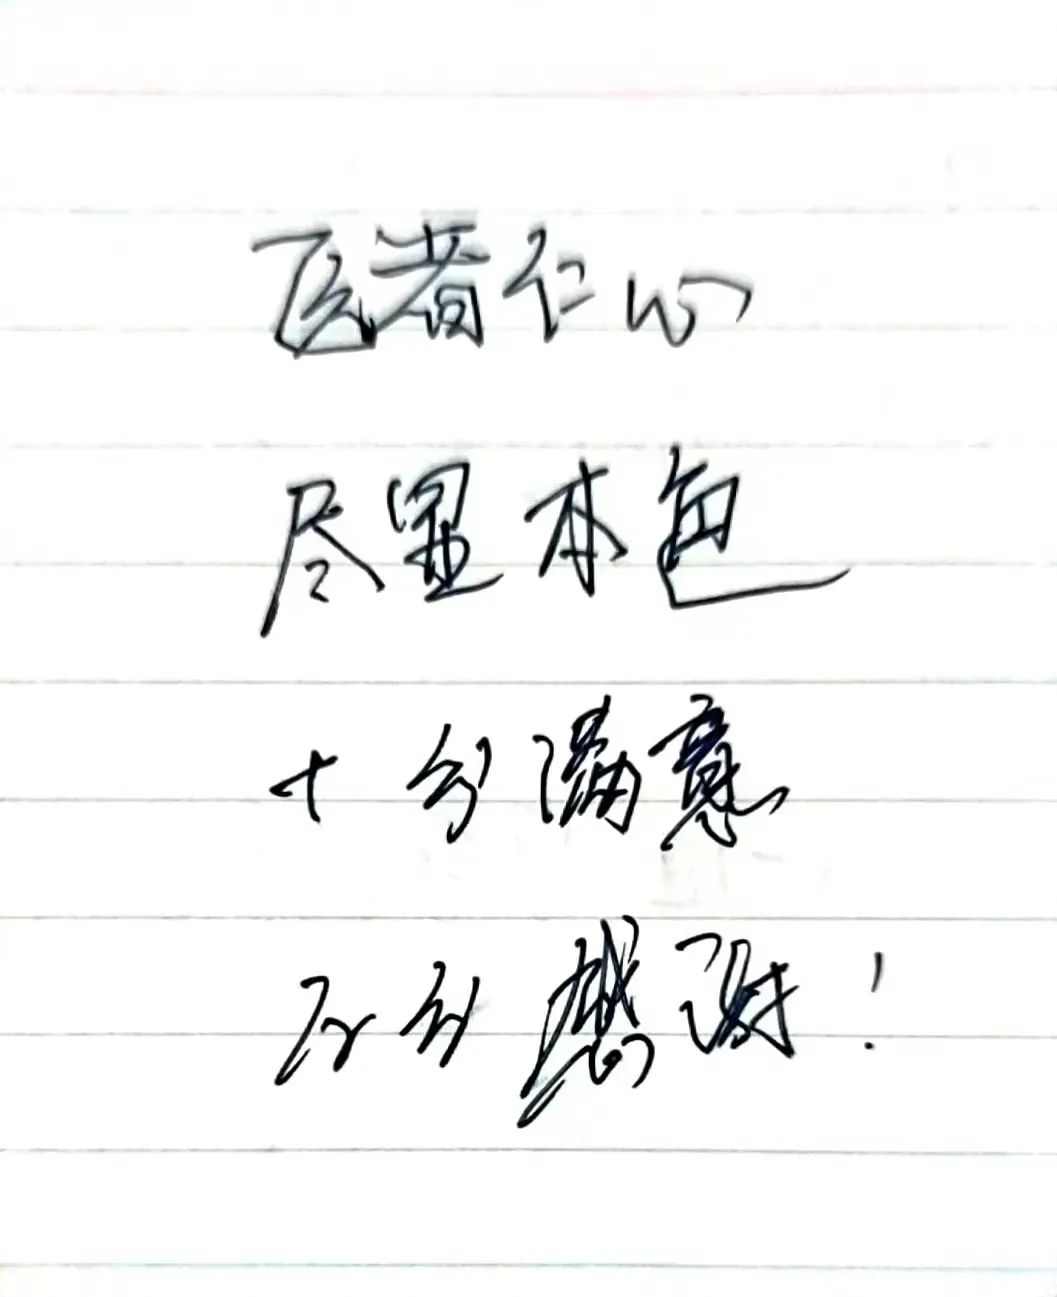 医者仁心
尽显本色
十分满意
万分感谢！